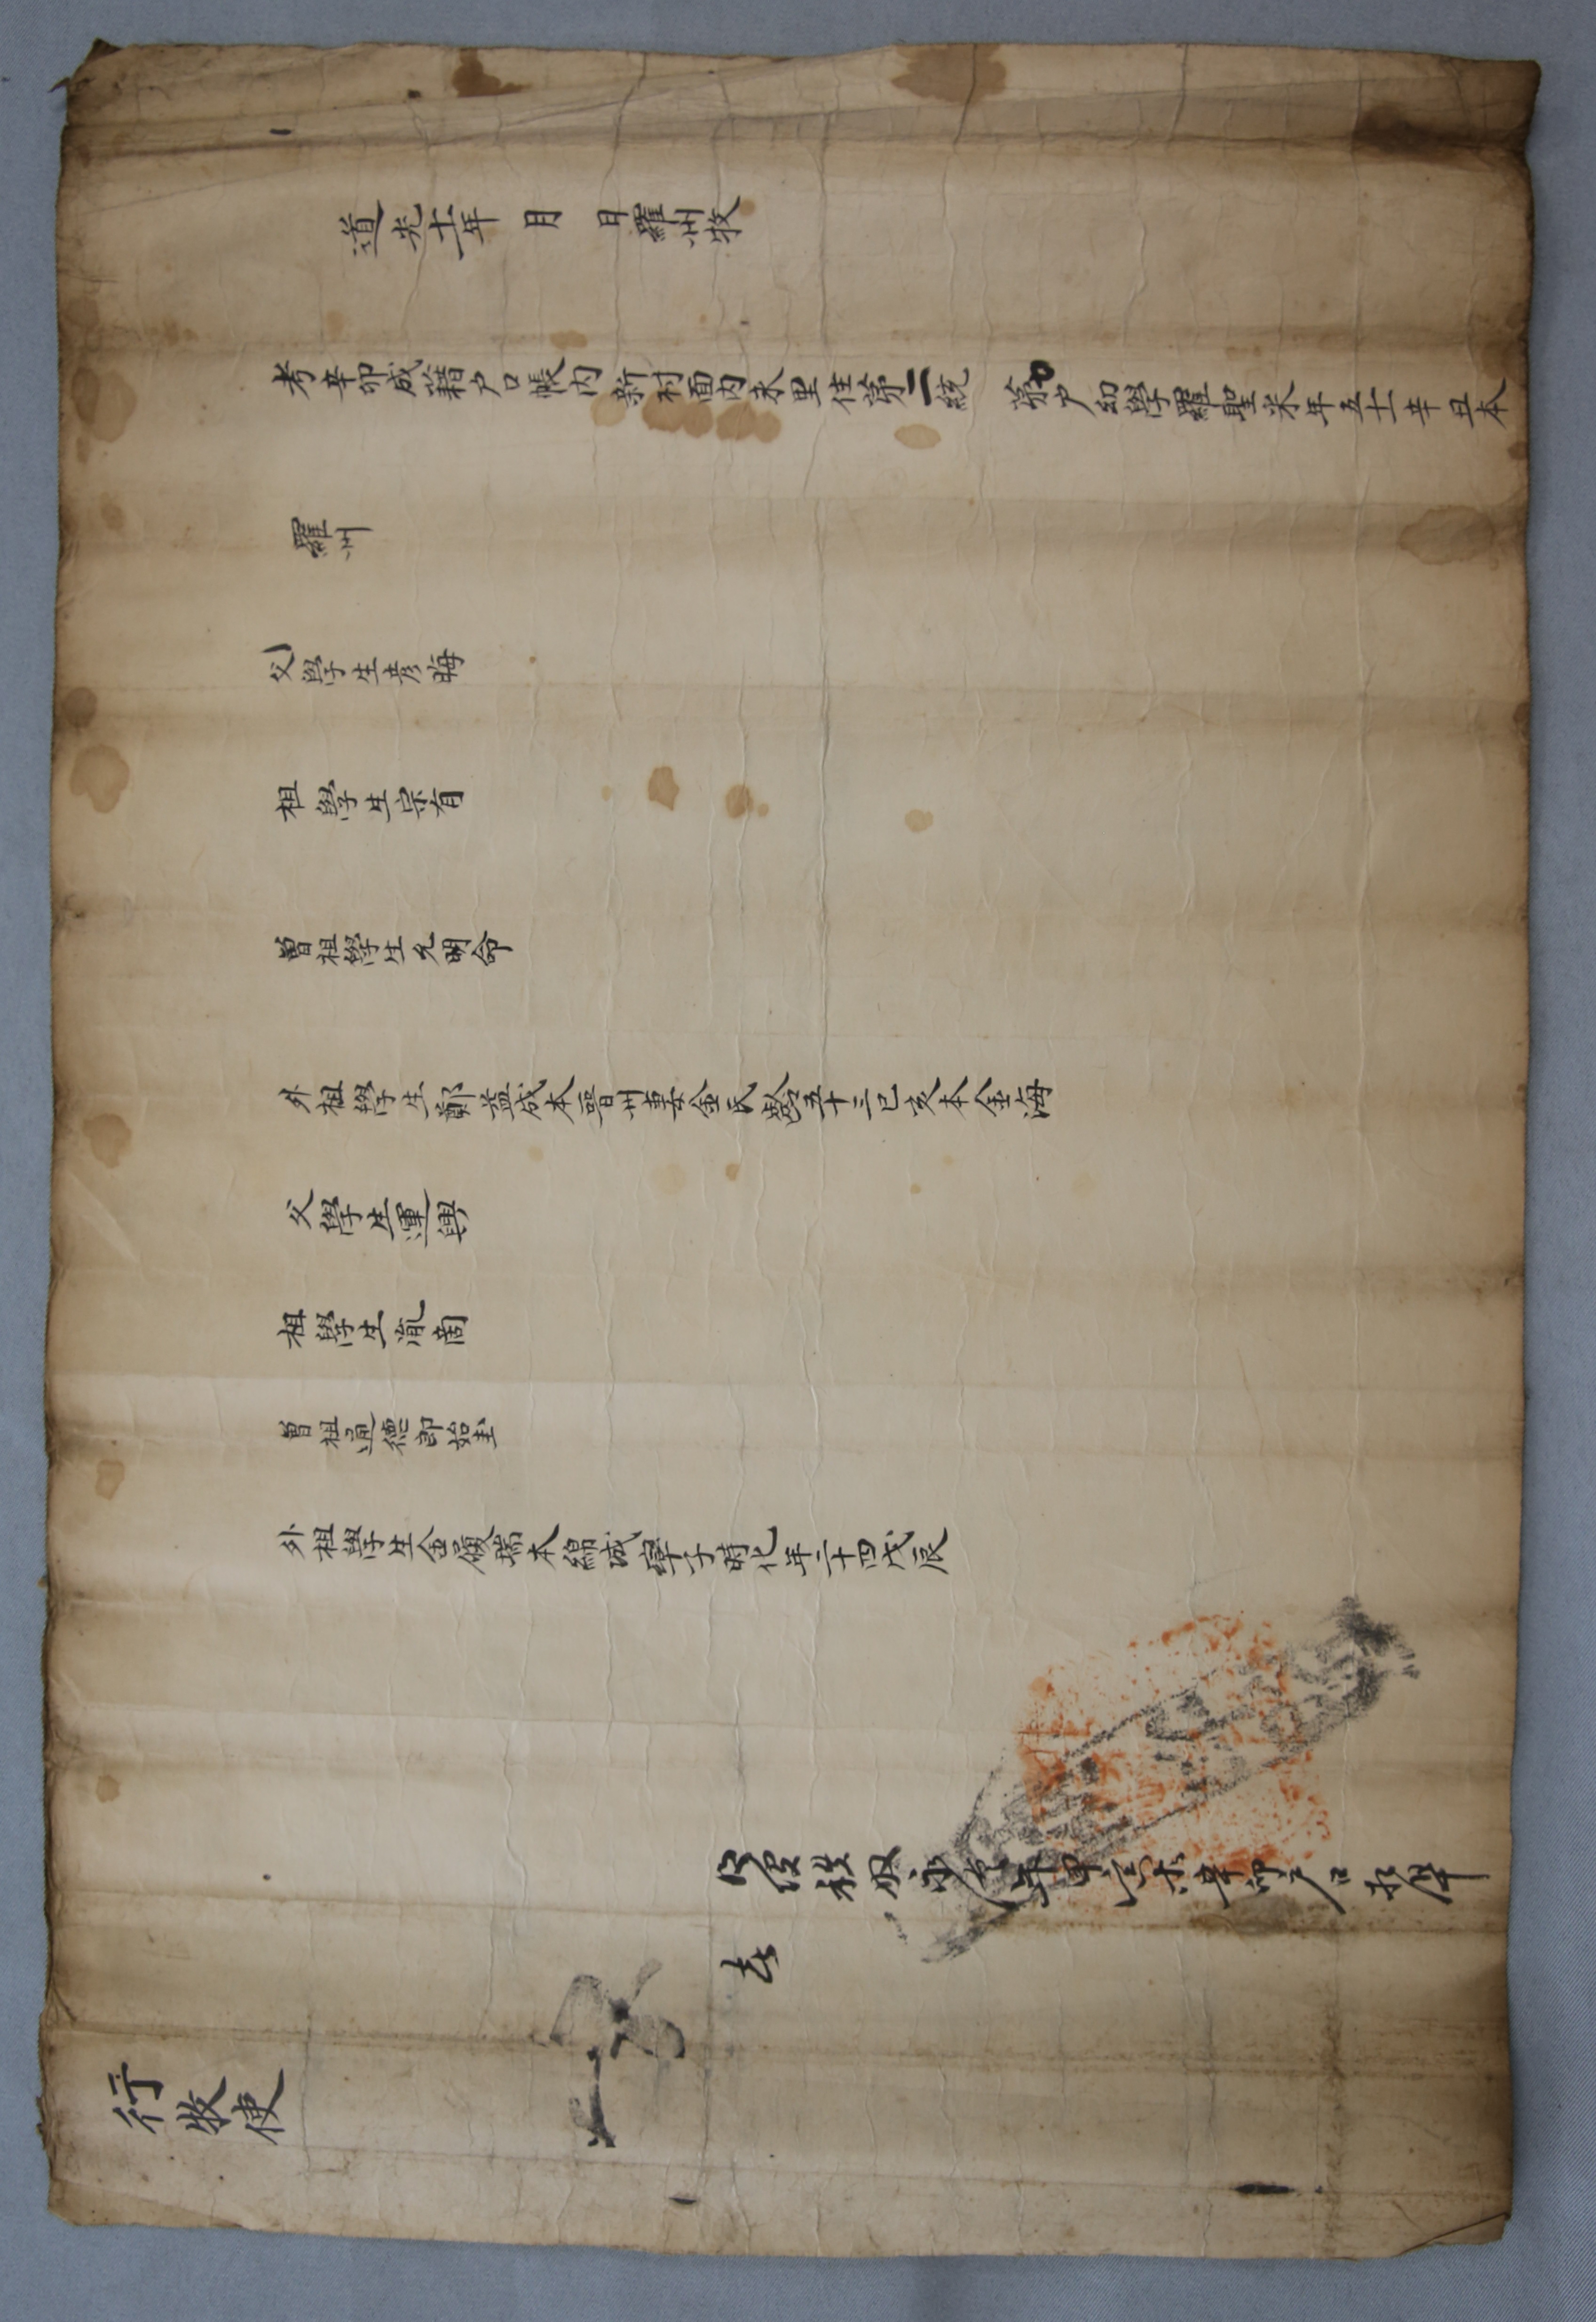 道光十一年 月 日羅州牧
考辛卯成籍戶口帳內新村面內永里住第二統 第戶幼學羅聖采年五十一辛丑本
羅州
父學生彦晦
祖學生宗有
曾祖學生允明命
外祖學生鄭益成本晋州妻金氏齡五十三己亥本金海
父學生運興
祖學生胤
曾祖通德郎始奎
外祖學生金瑞本綿城率子時化年二十四戊辰
辛卯戶口相準
去
行牧使